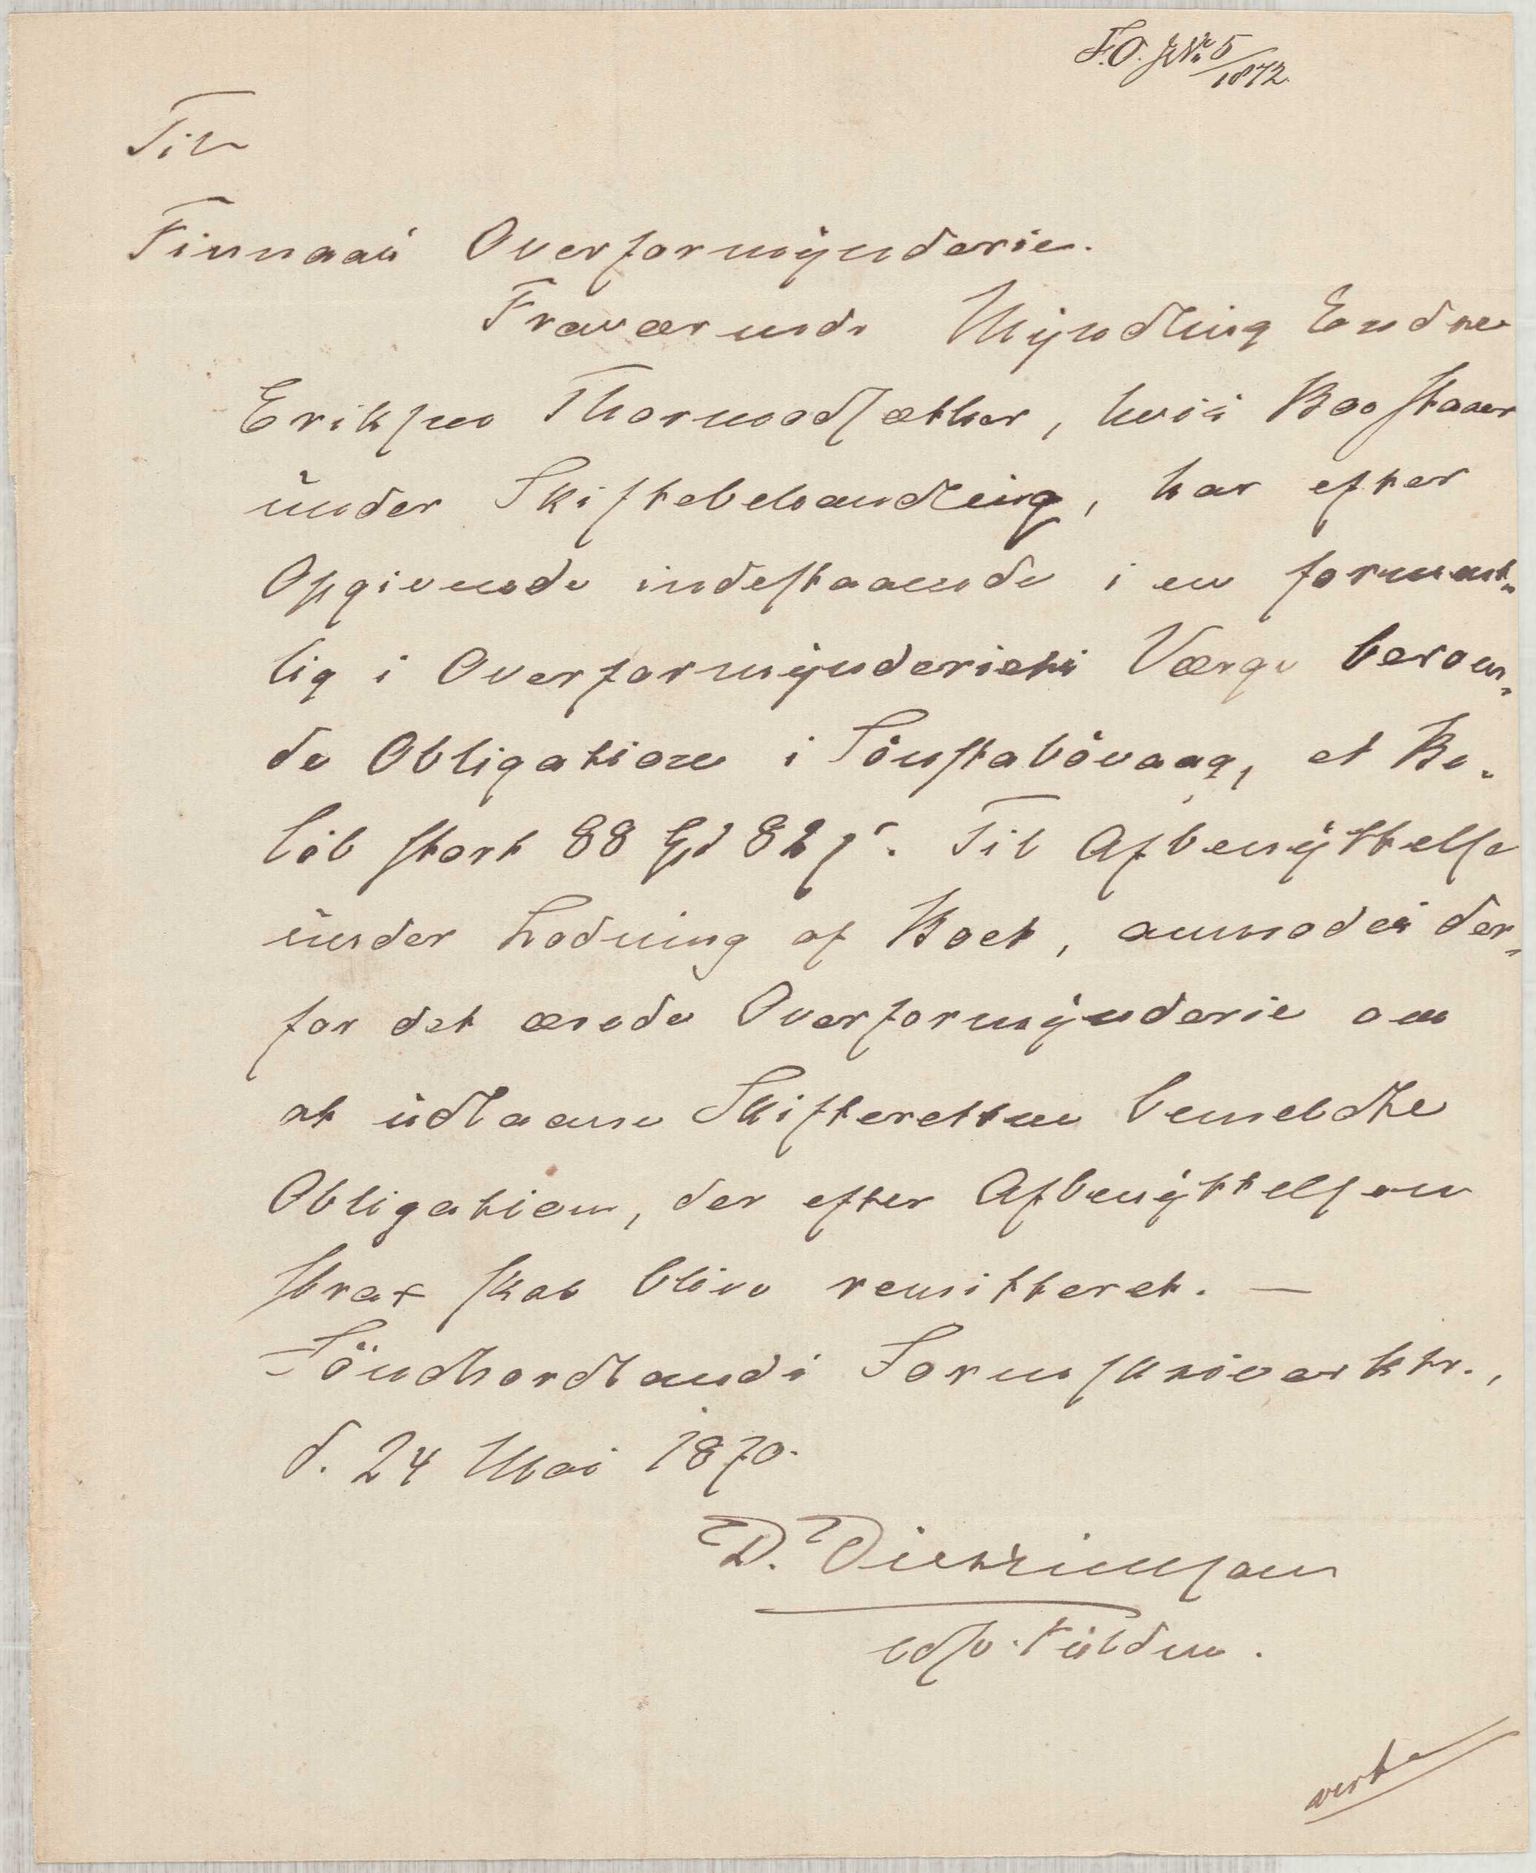 F.O. JNo 5/1872
Til
Finnaas Overformynderie.
Fraværende Myndling Endre
Eriksen Thormodsæther, hvis Bo staaer
under Skiftebehandling, har efter
Opgivende indestaaende i en forment-
lig i Overformynderiets Værge beroen-
de Obligation i Sönstabövaag, et Be-
löb stort 88 Spd 82 s. Til Afbenyttelse
under Lodning af Boet, anmodes der-
for det ærede Overformynderie om
at udlaane Skifteretten bemeldte
Obligation, der efter Afbenyttelsen
strax skal blive remitteret. —
Söndhordlands Sorenskriverktr.,
d. 24 Mai 1870.
D. Dietrichson
vert